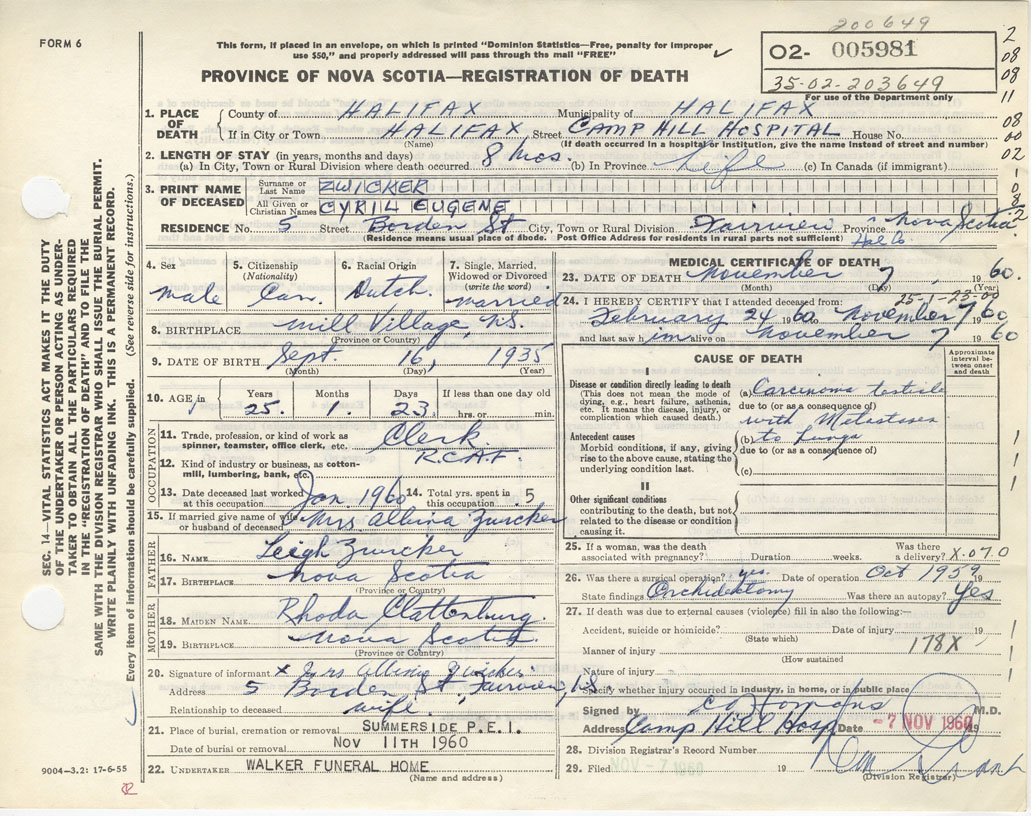 200649
FORM 6
This form, if placed in an envelope, on which is printed "Dominion Statistics—Free, penalty for improper
use $50," and properly addressed will pass through the mail "FREE"
02- 005981
35-02-203649
For use of the Department only
PROVINCE OF NOVA SCOTIA—REGISTRATION OF DEATH
1. PLACE OF DEATH
County of HALIFAX Municipality of HALIFAX
If in City or Town HALIFAX Street CAMP HILL HOSPITAL House No.
(Name) (If death occurred in a hospital or institution, give the name instead of street and number)
2. LENGTH OF STAY (in years, months and days)
(a) In City, Town or Rural Division where death occurred 8 mos. (b) In Province Life (c) In Canada (if immigrant)
3. PRINT NAME OF DECEASED
Surname or Last Name ZWICKER
All Given or Christian Names CYRIL EUGENE
RESIDENCE No. 5 Street Borden St City, Town or Rural Division Fairview Province Nova Scotia
(Residence means usual place of Abode. Post Office Address for residents in rural parts not sufficient) Hal Co.
4. Sex
male
5. Citizenship
(Nationality)
Can.
6. Racial Origin
Dutch.
7. Single, Married,
Widowed or Divorced
(write the word)
married
8. BIRTHPLACE Mill Village, N.S.
(Province or Country)
9. DATE OF BIRTH Sept. 16, 1935
(Month) (Day) (Year)
10. AGE in
Years Months Days If less than one day old
25. 1 23 hrs. or min.
OCCUPATION
11. Trade, profession, or kind of work as
spinner, teamster, office clerk, etc. Clerk.
12. Kind of industry or business, as cotton-
mill, lumbering, bank, etc. R.C.A.F.
13. Date deceased last worked
at this occupation Jan. 1960
14. Total yrs. spent in
this occupation 5
15. If married give name of wife
or husband of deceased Mrs Albina Zwicker
FATHER
16. NAME Leigh Zwicker
17. BIRTHPLACE Nova Scotia
(Province or Country)
MOTHER
18. MAIDEN NAME Rhoda Clattenburg.
19. BIRTHPLACE Nova Scotia
(Province or Country)
20. Signature of informant x Mrs Albina Zwicker
Address 5 Borden St, Fairview, N.S.
Relationship to deceased wife.
21. Place of burial, cremation or removal SUMMERSIDE P.E.I.
Date of burial or removal NOV 11TH 1960
22. UNDERTAKER WALKER FUNERAL HOME
(Name and address)
MEDICAL CERTIFICATE OF DEATH
23. DATE OF DEATH November 7, 1960.
(Month) (Day) (Year)
25-1-23-00
24. I HEREBY CERTIFY that I attended deceased from:
February 24 1960 to November 7 1960
and last saw him alive on November 7 1960
CAUSE OF DEATH
Approximate interval between onset and death
I
Disease or condition directly leading to death
(This does not mean the mode of
dying, e.g., heart failure, asthenia,
etc. It means the disease, injury, or
complication which caused death.)
(a) Carcinoma testicle
due to (or as a consequence of)
with Metastases
Antecedent causes
Morbid conditions, if any, giving
rise to the above cause, stating the
underlying condition last.
(b) to lungs
due to (or as a consequence of)
(c)
II
Other significant conditions
contributing to the death, but not
related to the disease or condition
causing it.
25. If a woman, was the death
associated with pregnancy? Duration weeks. Was there
a delivery? X.070
26. Was there a surgical operation? yes. Date of operation Oct 1959 19
State findings Orchidectomy Was there an autopsy? Yes
27. If death was due to external causes (violence) fill in also the following:—
Accident, suicide or homicide? Date of injury 19
(State which)
Manner of injury 178X
(How sustained
Nature of injury
Specify whether injury occurred in industry, in home, or in public place
Signed by M.D.
Address Camp Hill Hosp Date -7 NOV 1960 19
28. Division Registrar's Record Number
29. Filed NOV -7 1960 19
(Division Registrar)
SEC. 14—VITAL STATISTICS ACT MAKES IT THE DUTY
OF THE UNDERTAKER OR PERSON ACTING AS UNDER-
TAKER TO OBTAIN ALL THE PARTICULARS REQUIRED
IN THE "REGISTRATION OF DEATH" AND TO FILE THE
SAME WITH THE DIVISION REGISTRAR WHO SHALL ISSUE THE BURIAL PERMIT.
WRITE PLAINLY WITH UNFADING INK. THIS IS A PERMANENT RECORD.
Every item of information should be carefully supplied. (See reverse side for instructions.)
9004—3.2: 17-6-55
2
08
08
11
08
00
02
1
0
8
2
1
1
1
1
1
1